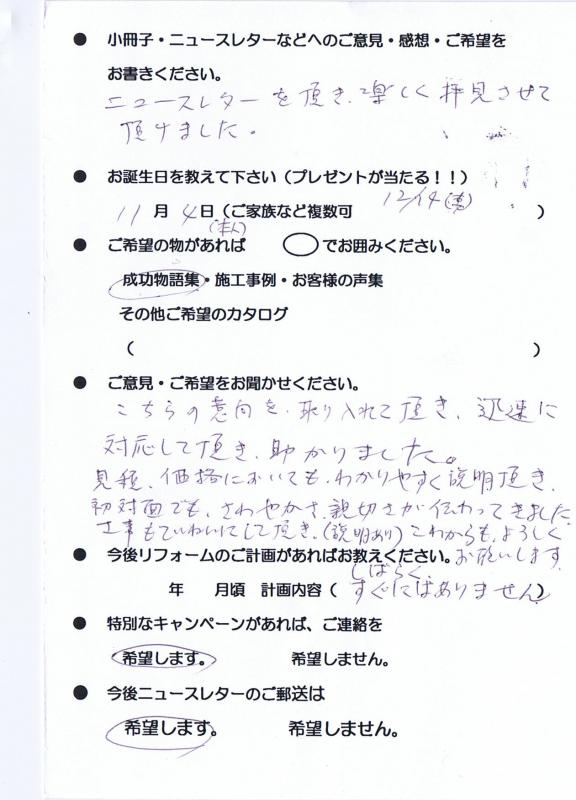 ● 小冊子・ニュースレターなどへのご意見・感想・ご希望を
お書きください。
ニュースレターを頂き、楽しく拝見させて
頂けました。
● お誕生日を教えて下さい（プレゼントが当たる！！）
11月4日（ご家族など複数可 12/14(妻) ）
(本人)
● ご希望の物があれば ◯でお囲みください。
成功物語集・施工事例・お客様の声集
その他ご希望のカタログ
（ ）
● ご意見・ご希望をお聞かせください。
こちらの意向を、取り入れて頂き、迅速に
対応して頂き、助かりました。
見積、価格においても、わかりやすく説明頂き、
初対面でも、さわやかさ、親切さが伝わってきました
工事もていねいにして頂き、(説明あり)これからも、よろしく
お願いします
● 今後リフォームのご計画があればお教えください。
しばらく、
年 月頃 計画内容（すぐにはありません）
● 特別なキャンペーンがあれば、ご連絡を
希望します。 希望しません。
● 今後ニュースレターのご郵送は
希望します。 希望しません。